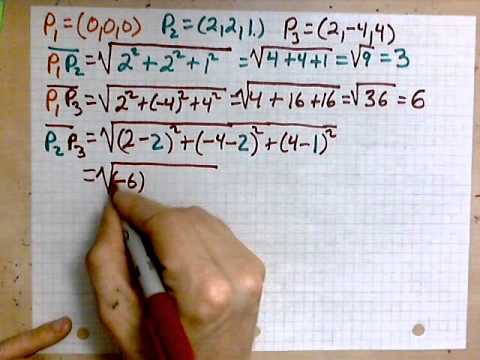 P₁ = (0,0,0) P₂ = (2,2,1.) P₃ = (2,-4,4)
P₁P₂ = √2² + 2² + 1² = √4+4+1 = √9 = 3
P₁P₃ = √2² + (-4)² + 4² = √4 + 16 + 16 = √36 = 6
P₂P₃ = √(2-2)² + (-4-2)² + (4-1)²
= √(-6)